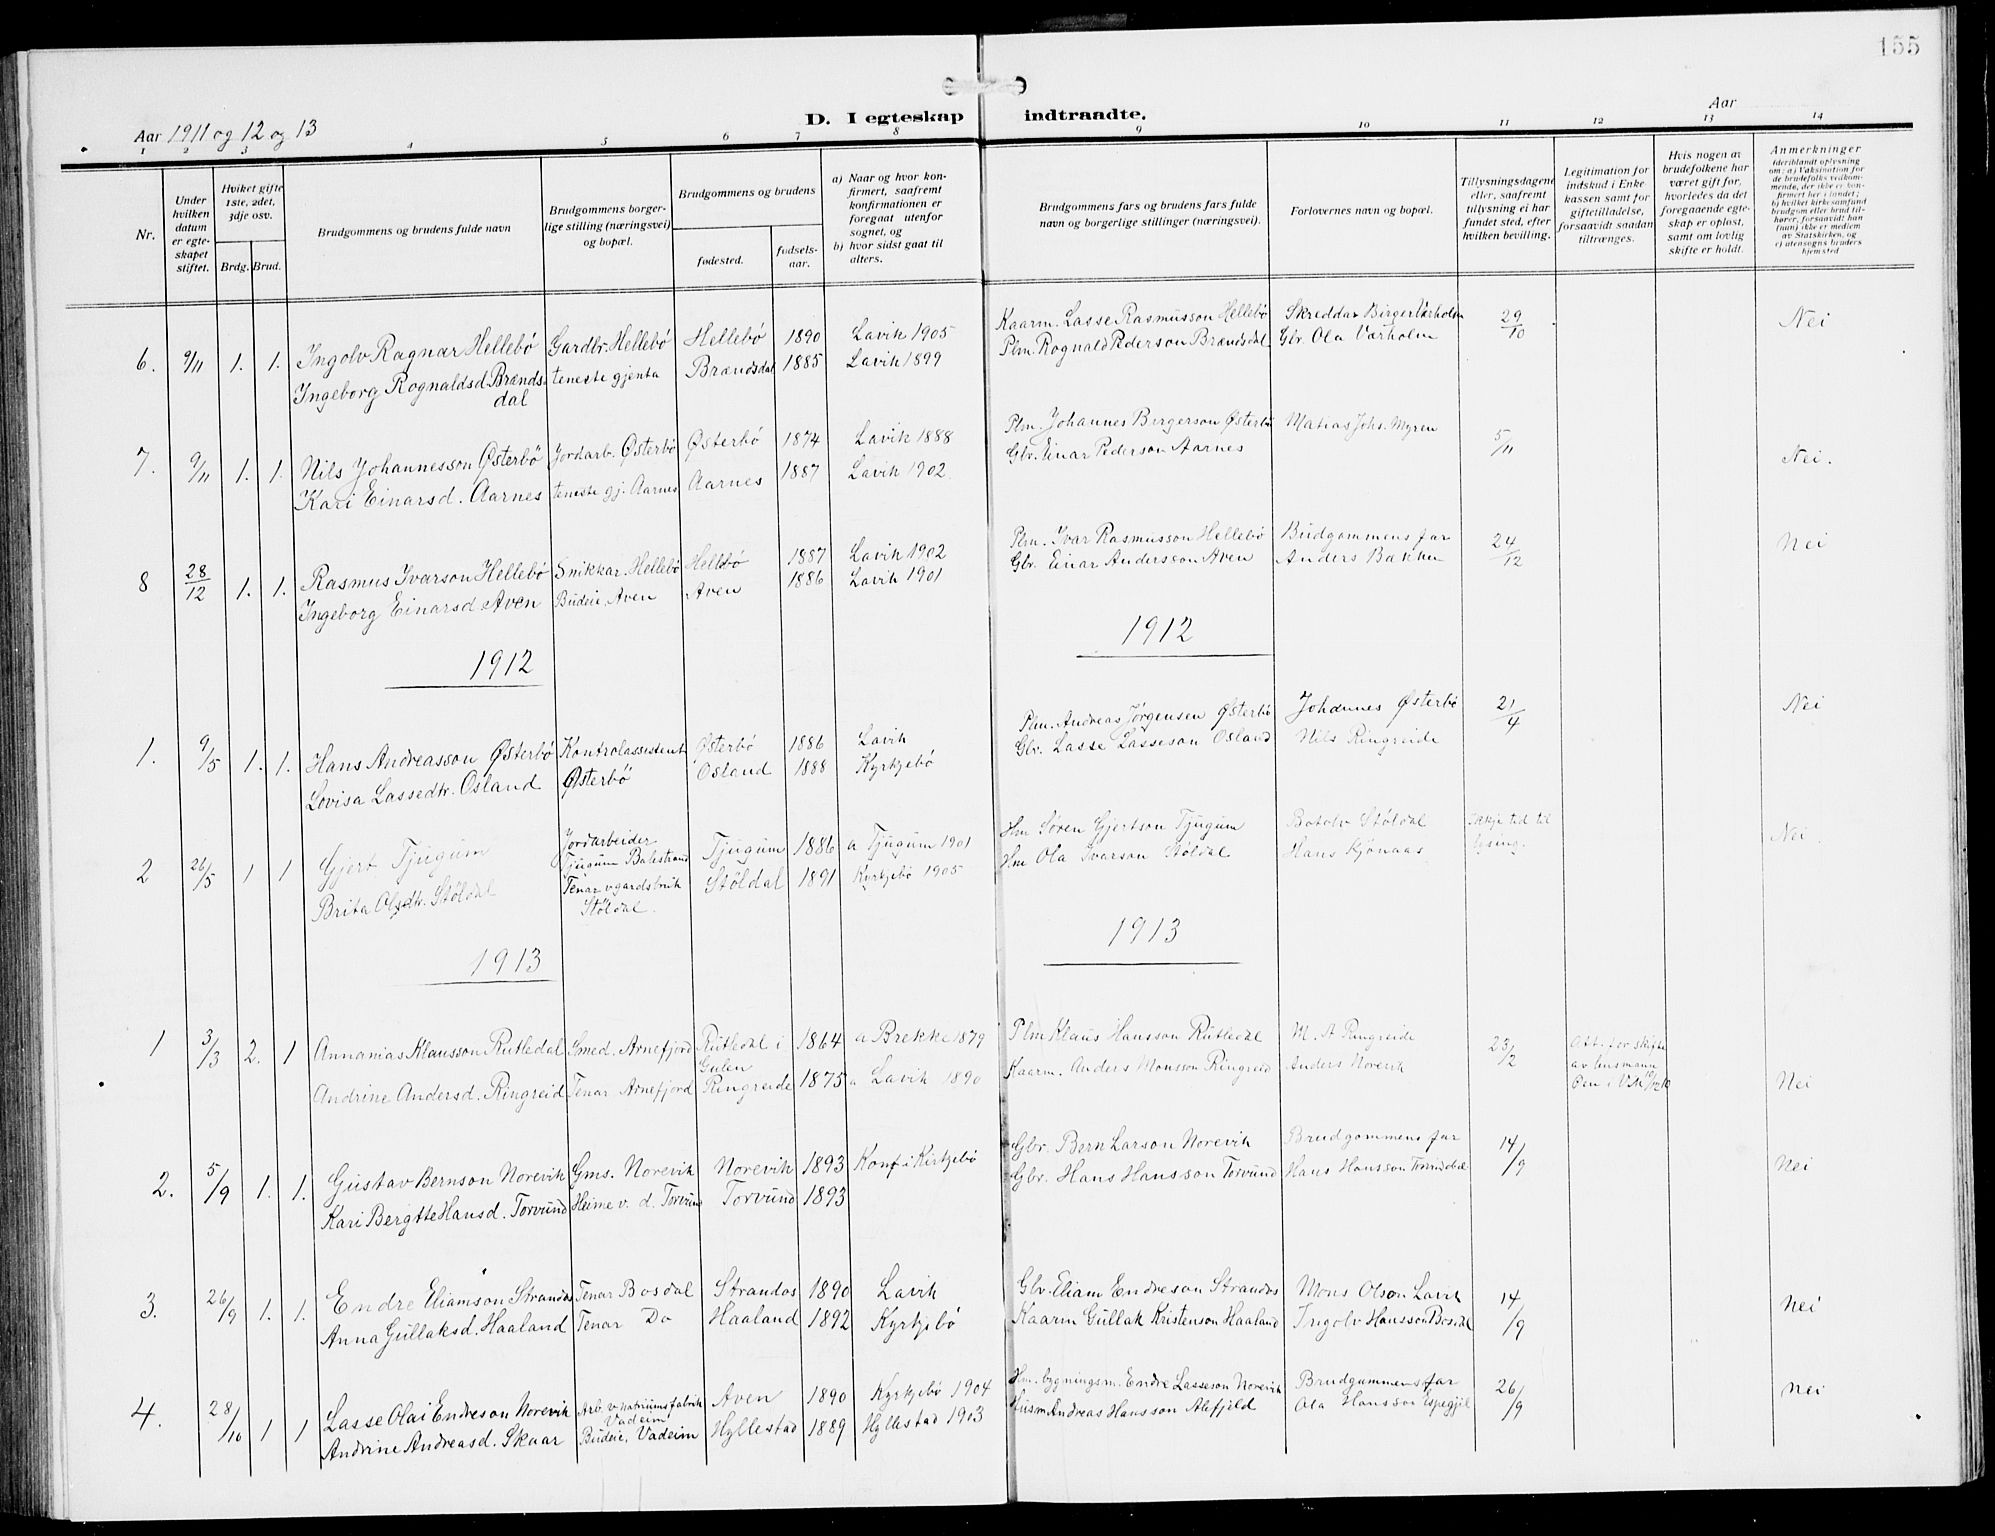 155
Aar 1911 og 12 og 13
D. I egteskap indtraadte.
Aar
1 2 3 4 5 6 7 8 9 10 11 12 13 14
Nr.
Under hvilken datum er egteskapet stiftet.
Hviket gifte 1ste, 2det, 3dje osv.
Brdg. Brud.
Brudgommens og brudens fulde navn
Brudgommens borgerlige stilling (næringsvei) og bopæl.
Brudgommens og brudens
fødested.
fødselsaar.
a) Naar og hvor konfirmert, saafremt konfirmationen er foregaat utenfor sognet, og
b) hvor sidst gaat til alters.
Brudgommens fars og brudens fars fulde navn og borgerlige stillinger (næringsvei).
Forlovernes navn og bopæl.
Tillysningsdagene eller, saafremt tillysning ei har fundet sted, efter hvilken bevilling.
Legitimation for indskud i Enkekassen samt for giftetilladelse, forsaavidt saadan tiltrænges.
Hvis nogen av brudefolkene har været gift før, hvorledes da det foregaaende egteskap er opløst, samt om lovlig skifte er holdt.
Anmerkninger (deriblandt oplysning om: a) Vaksination for de brudefolks vedkommende, der ikke er konfirmert her i landet; b) hvilket kirkesamfund brudgom eller brud tilhører, forsaavidt han (hun) ikke er medlem av Statskirken, og c) utensogns bruders hjemsted
6. 9/11 1. 1. Ingolv Ragnar Hellebö Gardbr. Hellebö Hellebö 1890 Lavik 1905 Kaarm. Lasse Rasmusson Hellebö Skreddar Birger Værholm 29/10 Nei
Ingeborg Rognaldsd. Brændsdal teneste gjenta Brændsdal 1885 Lavik 1899 Plm. Rognald Pederson Brændsdal Gbr. Ola Værholm
7. 9/11 1. 1. Nils Johannesson Østerbö Jordarb. Østerbö Østerbö 1874 Lavik 1888 Plm. Johannes Birgerson Østerbö Matias Johs. Myren 5/11 Nei.
Kari Einarsd. Aarnes teneste gj. Aarnes Aarnes 1887 Lavik 1902 Gbr. Einar Pederson Aarnes
8 28/12 1. 1. Rasmus Ivarson Hellebö Snikkar. Hellebö Hellebö 1887 Lavik 1902 Plm. Ivar Rasmusson Hellebö Budgommens far 24/12 Nei
Ingeborg Einarsd. Aven Budeie, Aven Aven 1886 Lavik 1901 Gbr. Einar Andersson Aven Anders Bakken
1912 1912
1. 9/5 1. 1. Hans Andreasson Østerbö Kontrolassistent Østerbö 1886 Lavik Plm. Andreas Jørgensen Østerbö Johannes Østerbö 21/4 Nei
Lovisa Lassedtr. Osland Østerbö Osland 1888 Kyrkjebö Gbr. Lasse Lasseson Osland Nils Ringreide
2 26/5 1 1 Gjert Tjugum Jordarbeider Tjugum Balestrand Tjugum 1886 a Tjugum 1901 Hm Søren Gjertson Tjugum Botolv Stöldal Ikkje tid til lysing. Nei
Brita Olsdtr. Stöldal Tenar v gardsbruk Stöldal. Stöldal 1891 Kyrkjebö 1905 Hm Ola Ivarson Stöldal Hans Kjönaas
1913 1913
1 3/3 2. 1 Annanias Klausson Rutledal Smed. Arnefjord Rutledal i Gulen 1864 a Brekke 1879 Plm Klaus Hansson Rutledal M. A Ringreide 23/2 Att. for skifte av lensmann
Andrine Andersd. Ringreid Tenar Arnefjord Ringreide 1875 a Lavik 1890 Kaarm. Anders Monsson Ringreid Anders Norevik Nei
2. 5/9 1. 1. Gustav Bernson Norevik Gms. Norevik Norevik 1893 Konf i Kirkjebö Gbr. Bern Larson Norevik Brudgommens far 14/9 Nei
Kari Bergitte Hansd. Torvund Heime v. d. Torvund Torvund 1893 Gbr. Hans Hansson Torvund Hans Hansson
3. 26/9 1. 1. Endre Eliamson Strandos Tenar Bosdal Strandos 1890 Lavik Gbr. Eliam Endreson Strandos Mons Olson Lavik 14/9 Nei
Anna Gullaksd. Haaland Tenar Do Haaland 1892 Kyrkjebö Kaarm Gullak Kristenson Haaland Ingolv Hansson Bosdal
4. 28/10 1 1 Lasse Olai Endreson Norevik Arb. v natriumsfabrik Vadeim Aven 1890 Kyrkjebö 1904 Hm. bygningsm. Endre Lasseson Norevik Brudgummens far 26/9 Nei
Andrine Andreasd. Skaar Budeie, Vadeim Hyllestad 1889 Hyllestad 1903 Husm Andreas Hansson Alefjeld Ola Hansson Espegjil